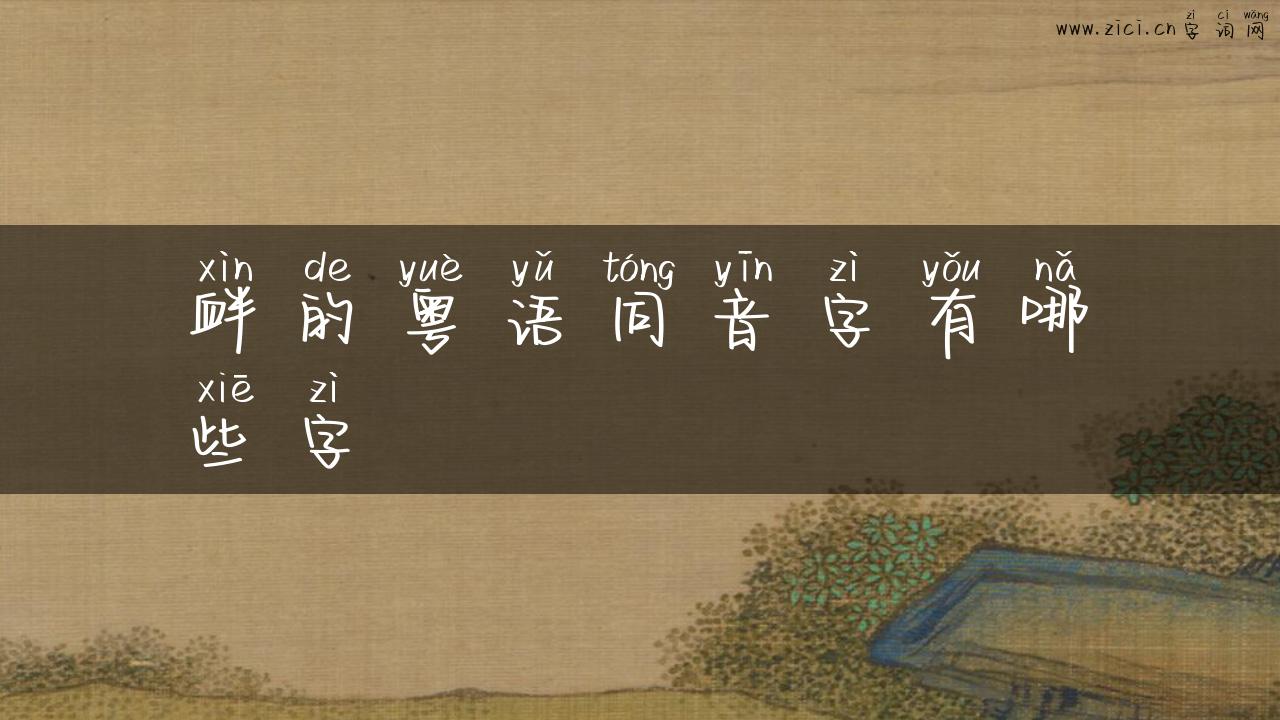 zì cí wǎng
www.zici.cn 字词网
xìn de yuè yǔ tóng yīn zì yǒu nǎ
衅的粤语同音字有哪
xiē zì
些字